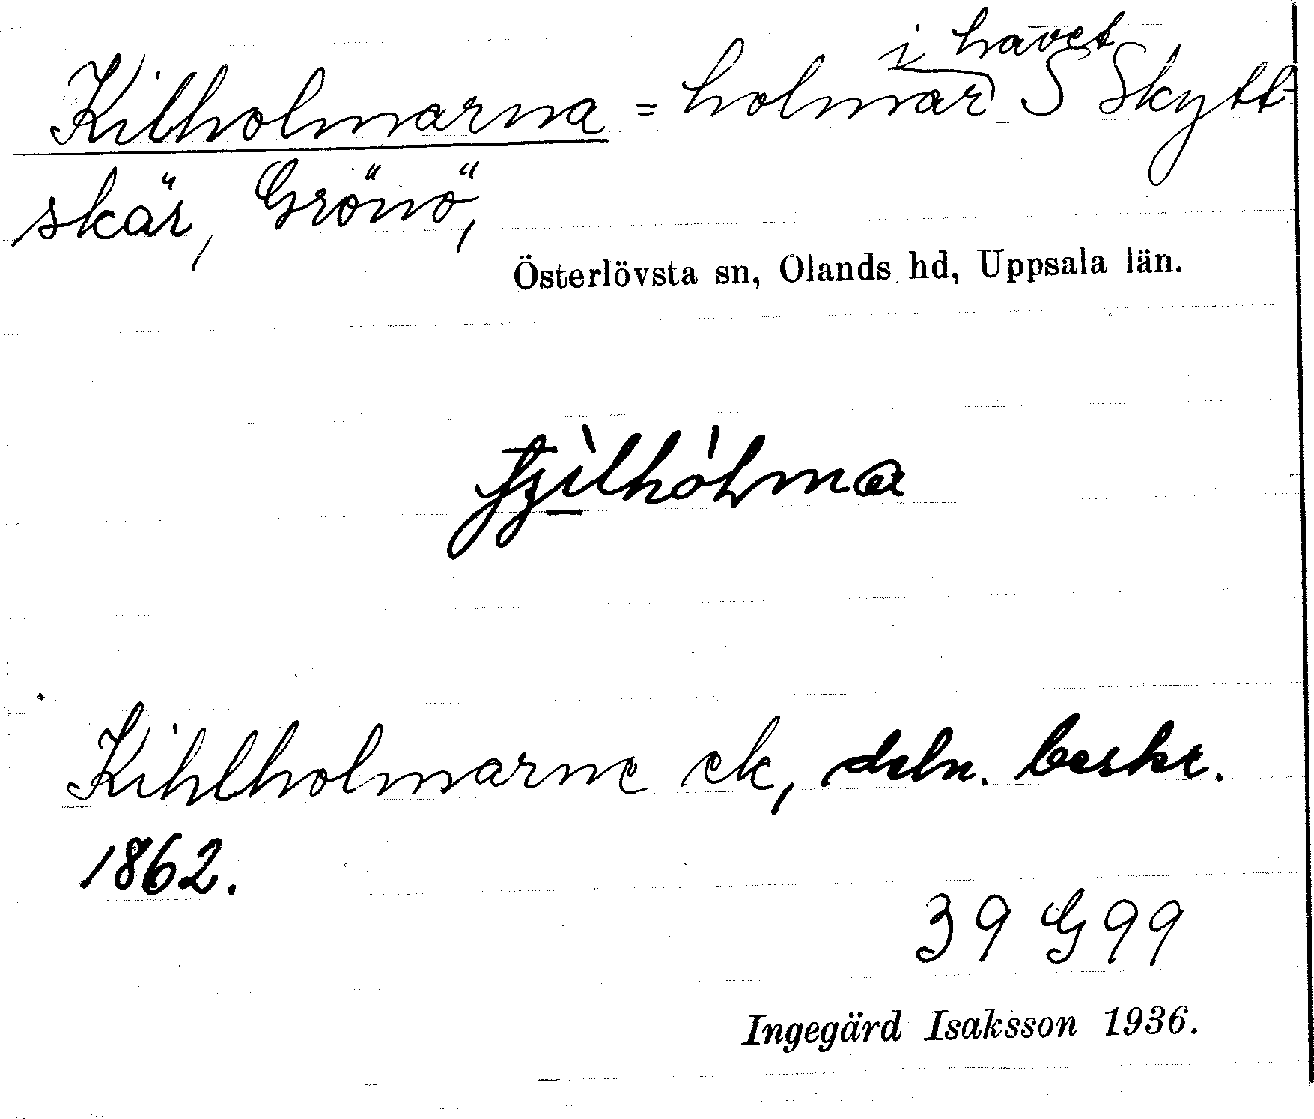 Kilholmarna = holmar i havet S Skytt-
skär, Grönö,
Österlövsta sn, Olands hd, Uppsala län.
Kihlholmarne ek, deln. beskr.
1862.
39 G 99
Ingegärd Isaksson 1936.